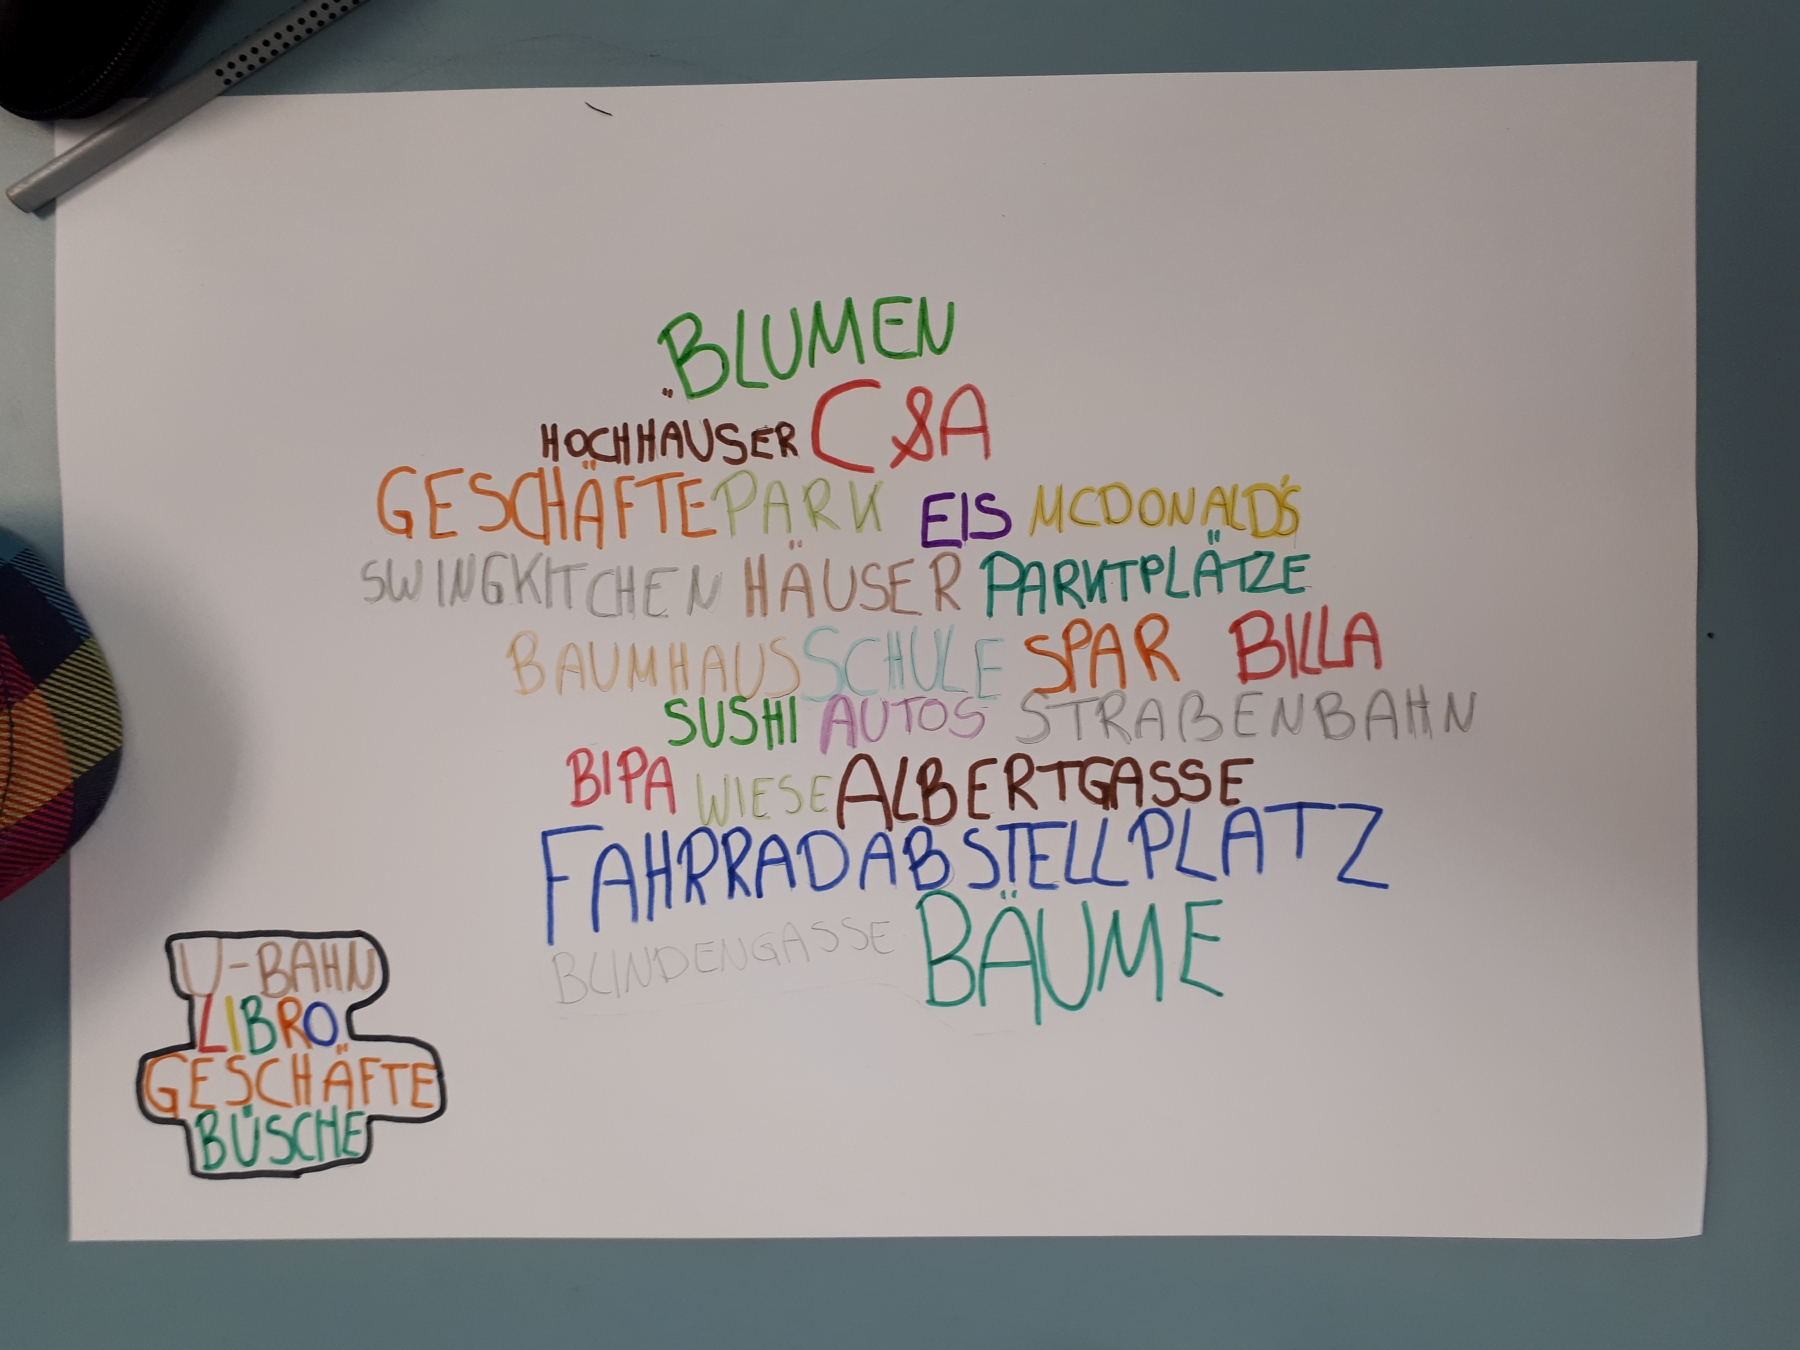 BLUMEN
HOCHHÄUSER C&A
GESCHÄFTE PARK EIS MCDONALD'S
SWINGKITCHEN HÄUSER PARKTPLÄTZE
BAUMHAUS SCHULE SPAR BILLA
SUSHI AUTOS STRAßENBAHN
BIPA WIESE ALBERTGASSE
FAHRRADABSTELLPLATZ
BLINDENGASSE BÄUME
U-BAHN
LIBRO
GESCHÄFTE
BÜSCHE